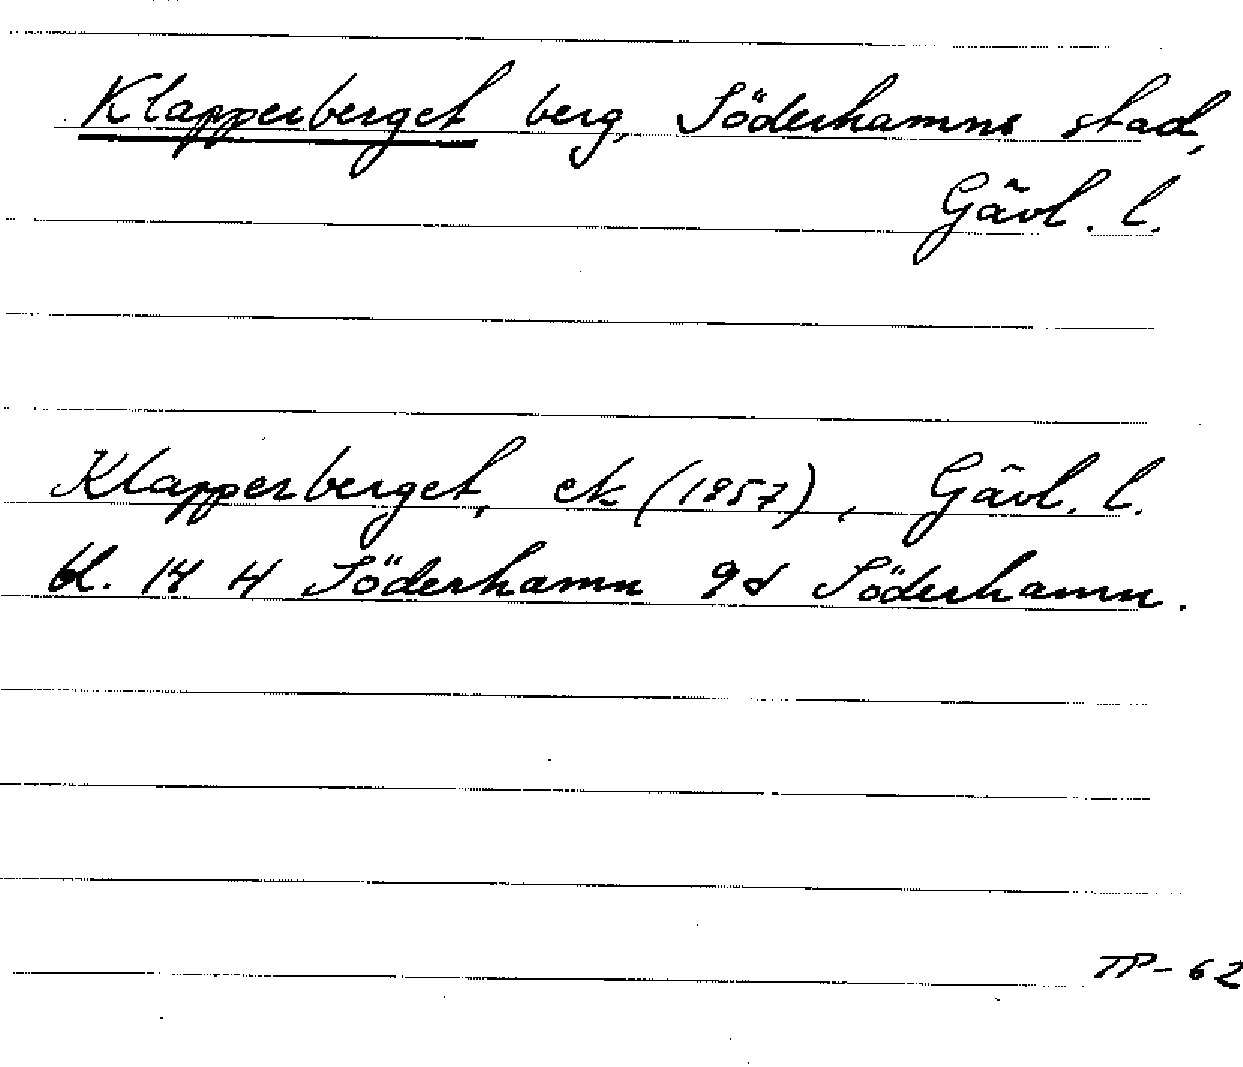 Klapperberget berg, Söderhamns stad,
Gävl. l.
Klapperberget, ek (1957), Gävl. l.
bl. 14 H Söderhamn 9d Söderhamn.
TP-62